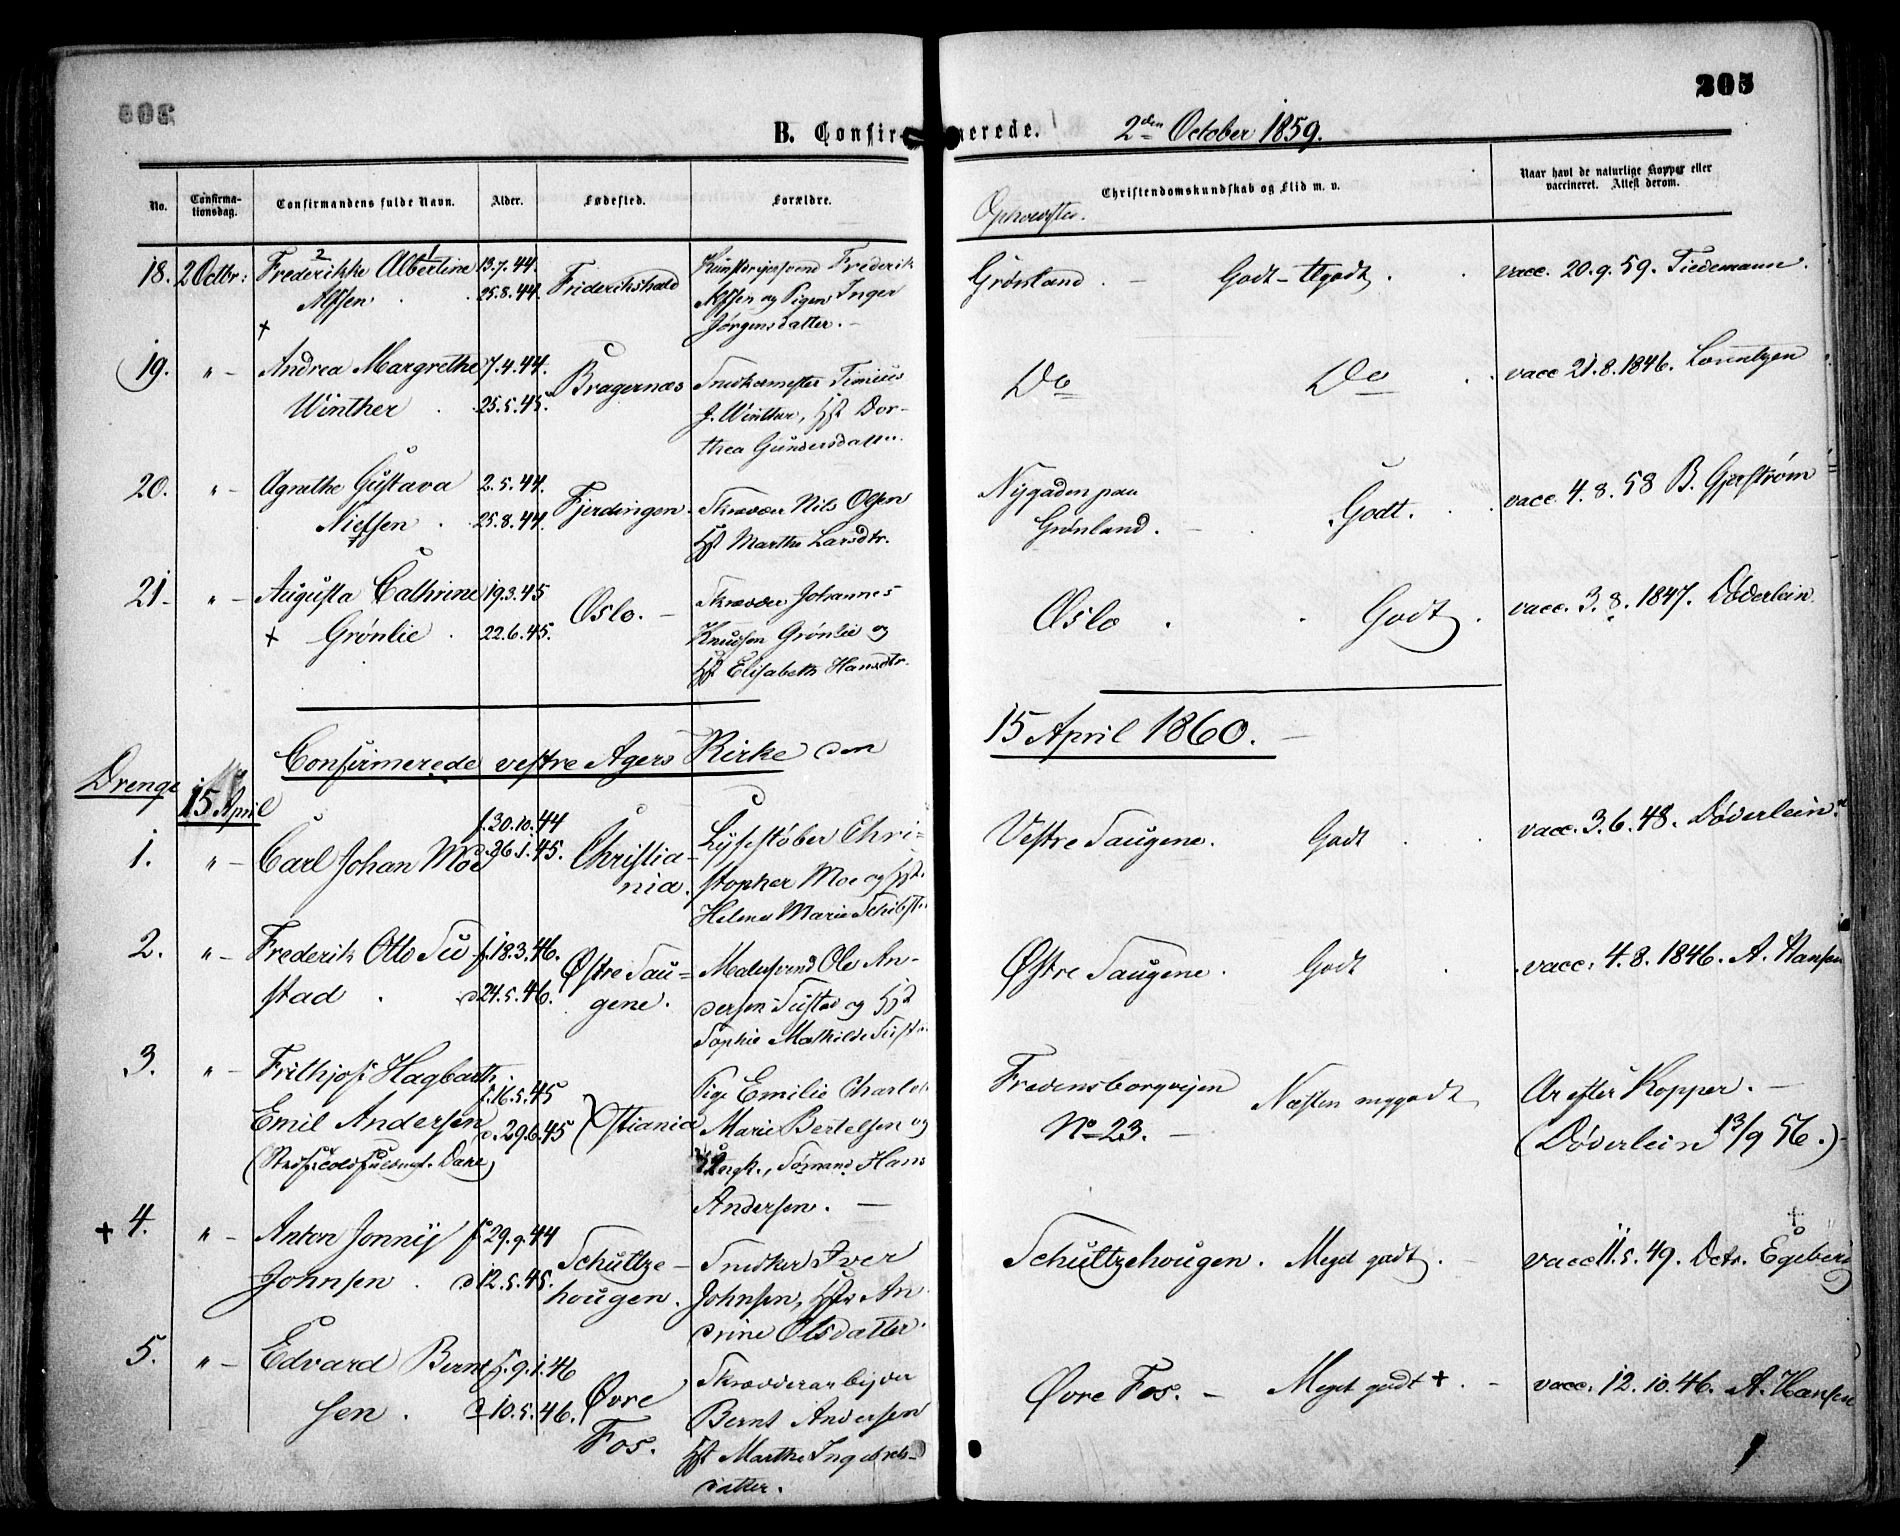 305
B. Confirmerede. 2den October 1859.
No. Confirma-tionsdag. Confirmandens fulde Navn. Alder. Fødested. Forældre. Christendomskundskab og Flid m. v. Naar havt de naturlige Kopper eller vaccineret. Attest derom.
Opholdssted.
18. 2 Octbr: Frederikke Albertine 13.7.44. Friderikshald Frederik Grønland Godt - vacc. 20.9.59. Tiedemann.
25.8.44. og Pigen Inger
+ Jørgensdatter. -
19. " - Andrea Margrethe 7.4.44. Bragernæs Snedkermester Do Do vacc 21.8.1846.
Winther 25.5.45. J. Winther, Hst Dor-
thea Gundersdatter.
20. " - Agnethe Gustava 2.5.44. Fjerdingen Skrædder Nils Olsen Nygaden paa Godt. vacc. 4.8.58 B. Gjerstrøm
Nielsen 25.8.44. Hst Marthe Larsdtr. Grønland.
21 - " - Augusta Cathrine 19.3.45 Oslo. - Skrædder Johannes Oslo Godt. vacc. 3.8.1847. Døderlein
+ Grønlie 22.6.45. Knudsen Grønlie og
Hst Elisabeth Hansdtr.
Confirmerede vestre Agers Kirke den 15 April 1860. -
Drenge 15 April
1. " - Carl Johan Moe f. 30.10.44 Christia- Lysestøber Chri- Vestre Saugene. Godt vacc. 3.6.48. Døderlein.
d. 26.1.45. nia. stopher Moe og Hst.
Helene Marie
2. " - Frederik Otto Tu- f. 18.3.46. Østre Sau- Malersvend Ole An- Østre Saugene. Godt vacc. 4.8.1846. A. Hansen
stad d. 24.5.46. gene. dersen Tustad og Hst
Sophie Mathilde
3. " - Frithjof Hagbarth f. 16.5.45 Xstiania Pige Emilie Fredensborgvejen Næsten mggodt Ar efter Kopper. -
Emil Andersen d. 29.6.45 Marie Bertelsen og No 23. - (Døderlein 13/9 56.)
Ungk., Sømand Hans
Andersen. -
+ 4. " - Anton Jonny f 29.9.44 Schultze- Snedker Iver Schultzehougen. Meget godt. vacc 11.5.49. Dctr. Egeberg
Johnsen d 12.5.45. hougen. Johnsen, Hst An-
drine Olsdatter
5. " - Edvard Bernt- f. 9.1.46 Øvre Skrædderarbejder Øvre Fos. - Meget godt + vacc. 12.10.46. A. Hansen
sen d 10.5.46. Fos. Bernt Andersen
Hst Marthe Ingebrets-
datter.